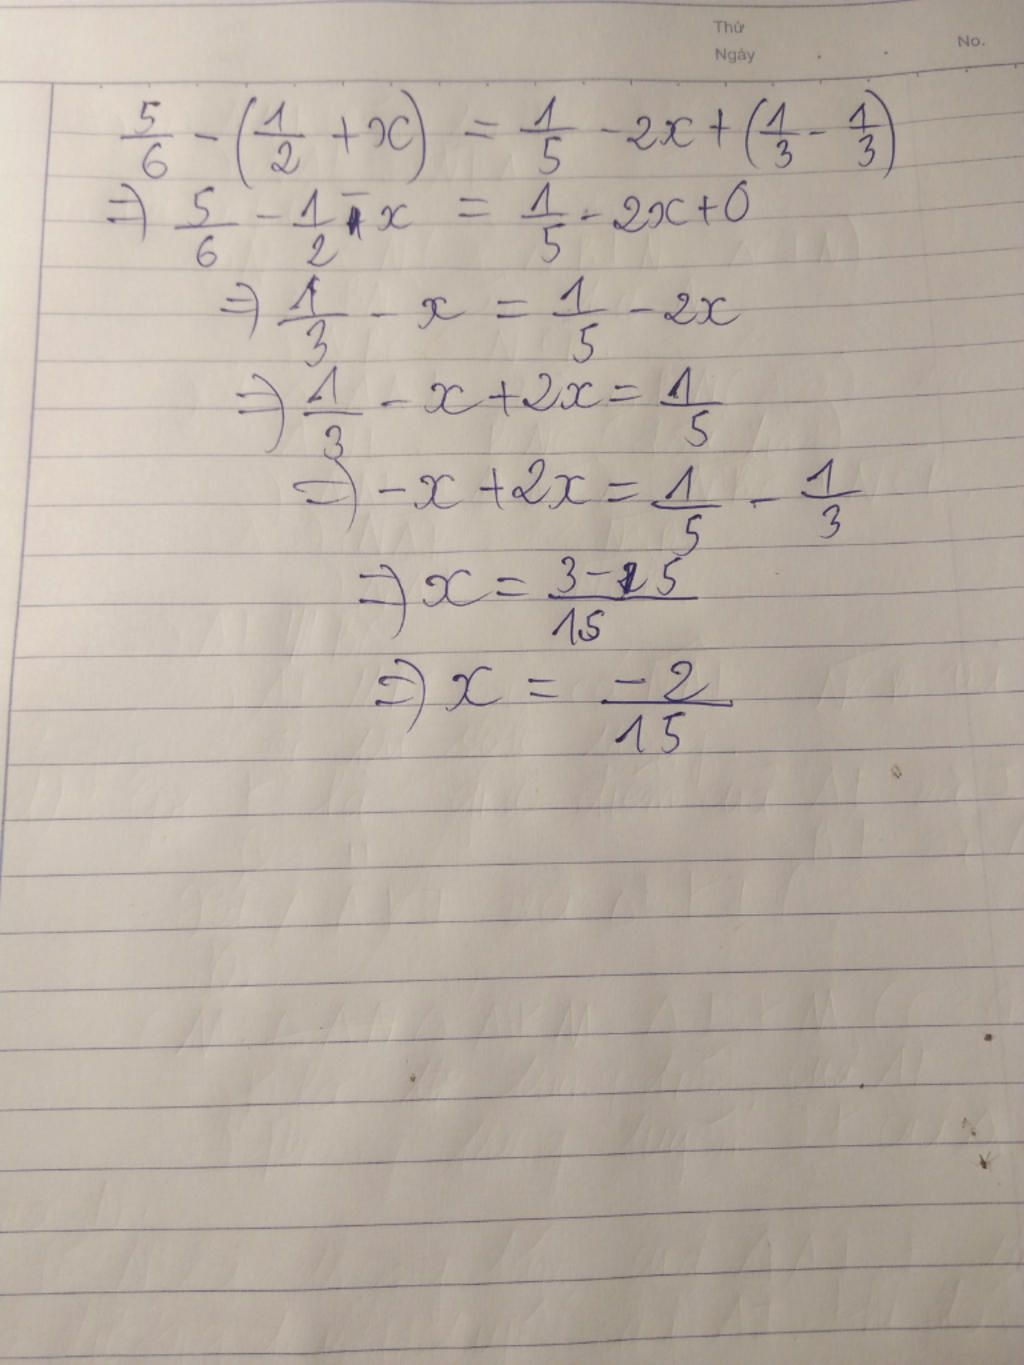 Thứ
Ngày . . No.
5/6 - (1/2 + x) = 1/5 - 2x + (1/3 - 1/3)
=> 5/6 - 1/2 - x = 1/5 - 2x + 0
=> 1/3 - x = 1/5 - 2x
=> 1/3 - x + 2x = 1/5
=> -x + 2x = 1/5 - 1/3
=> x = (3 - 5)/15
=> x = -2/15